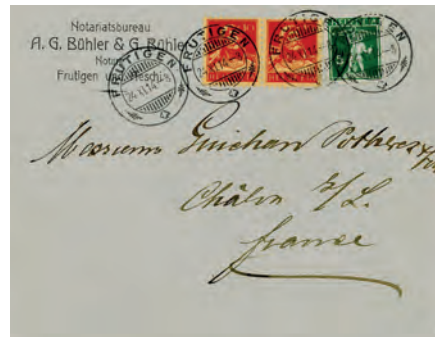 Notariatsbureau
A. G. Bühler & G. Bühler
Frutigen und Aeschi
FRUTIGEN
24.XI.14
FRUTIGEN
24.XI.14
FRUTIGEN
FRUTIGEN
Messieurs Guichard Potheret
Châlon s/S.
france